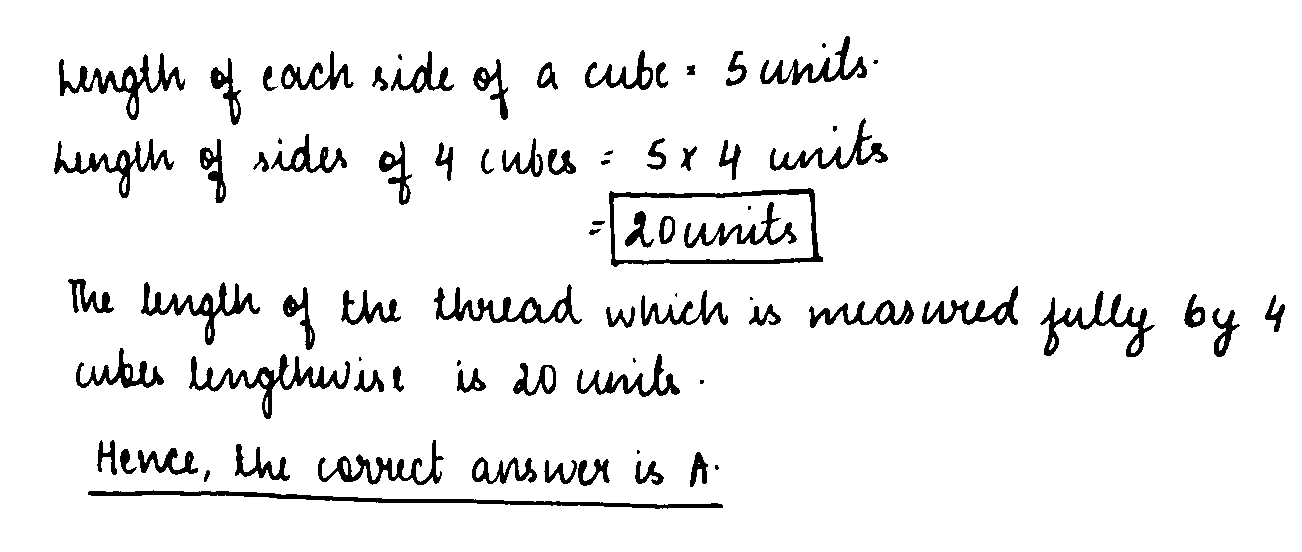 Length of each side of a cube = 5 units.
Length of sides of 4 cubes = 5 x 4 units
= 20 units
The length of the thread which is measured fully by 4
cubes lengthwise is 20 units.
Hence, the correct answer is A.